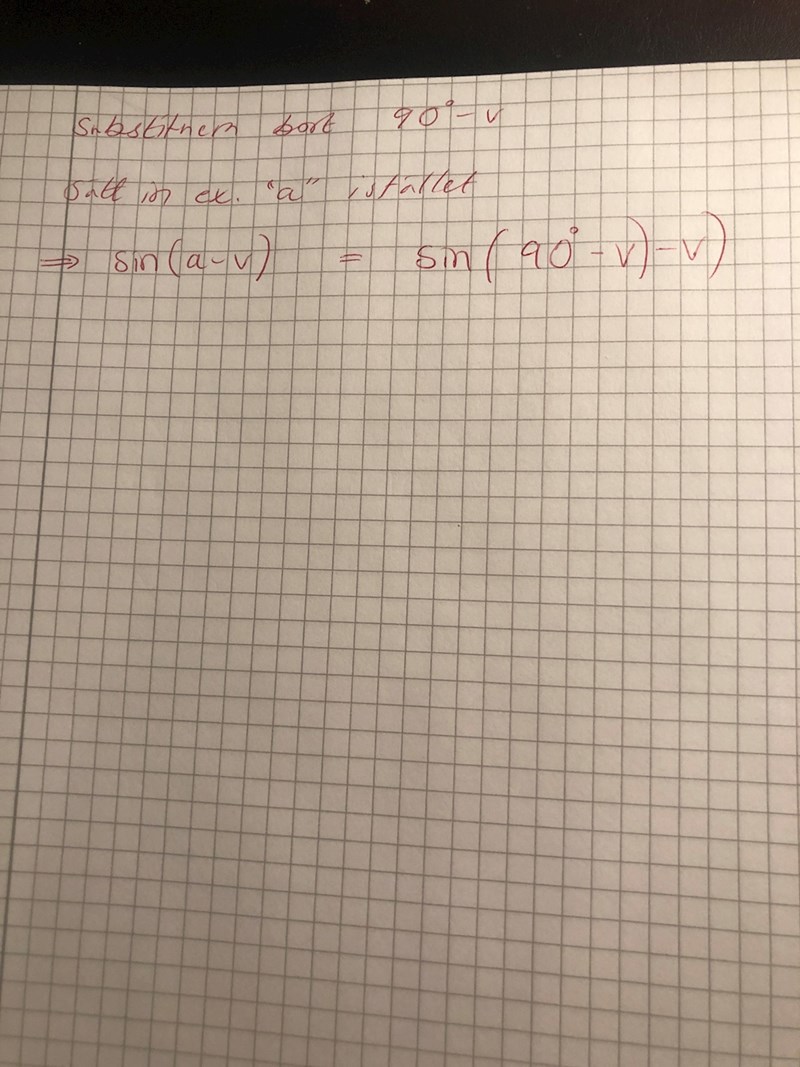 Substituera bort 90° - v
Sätt in ex. "a" istället
⇒ sin(a-v) = sin(90° - v) - v)